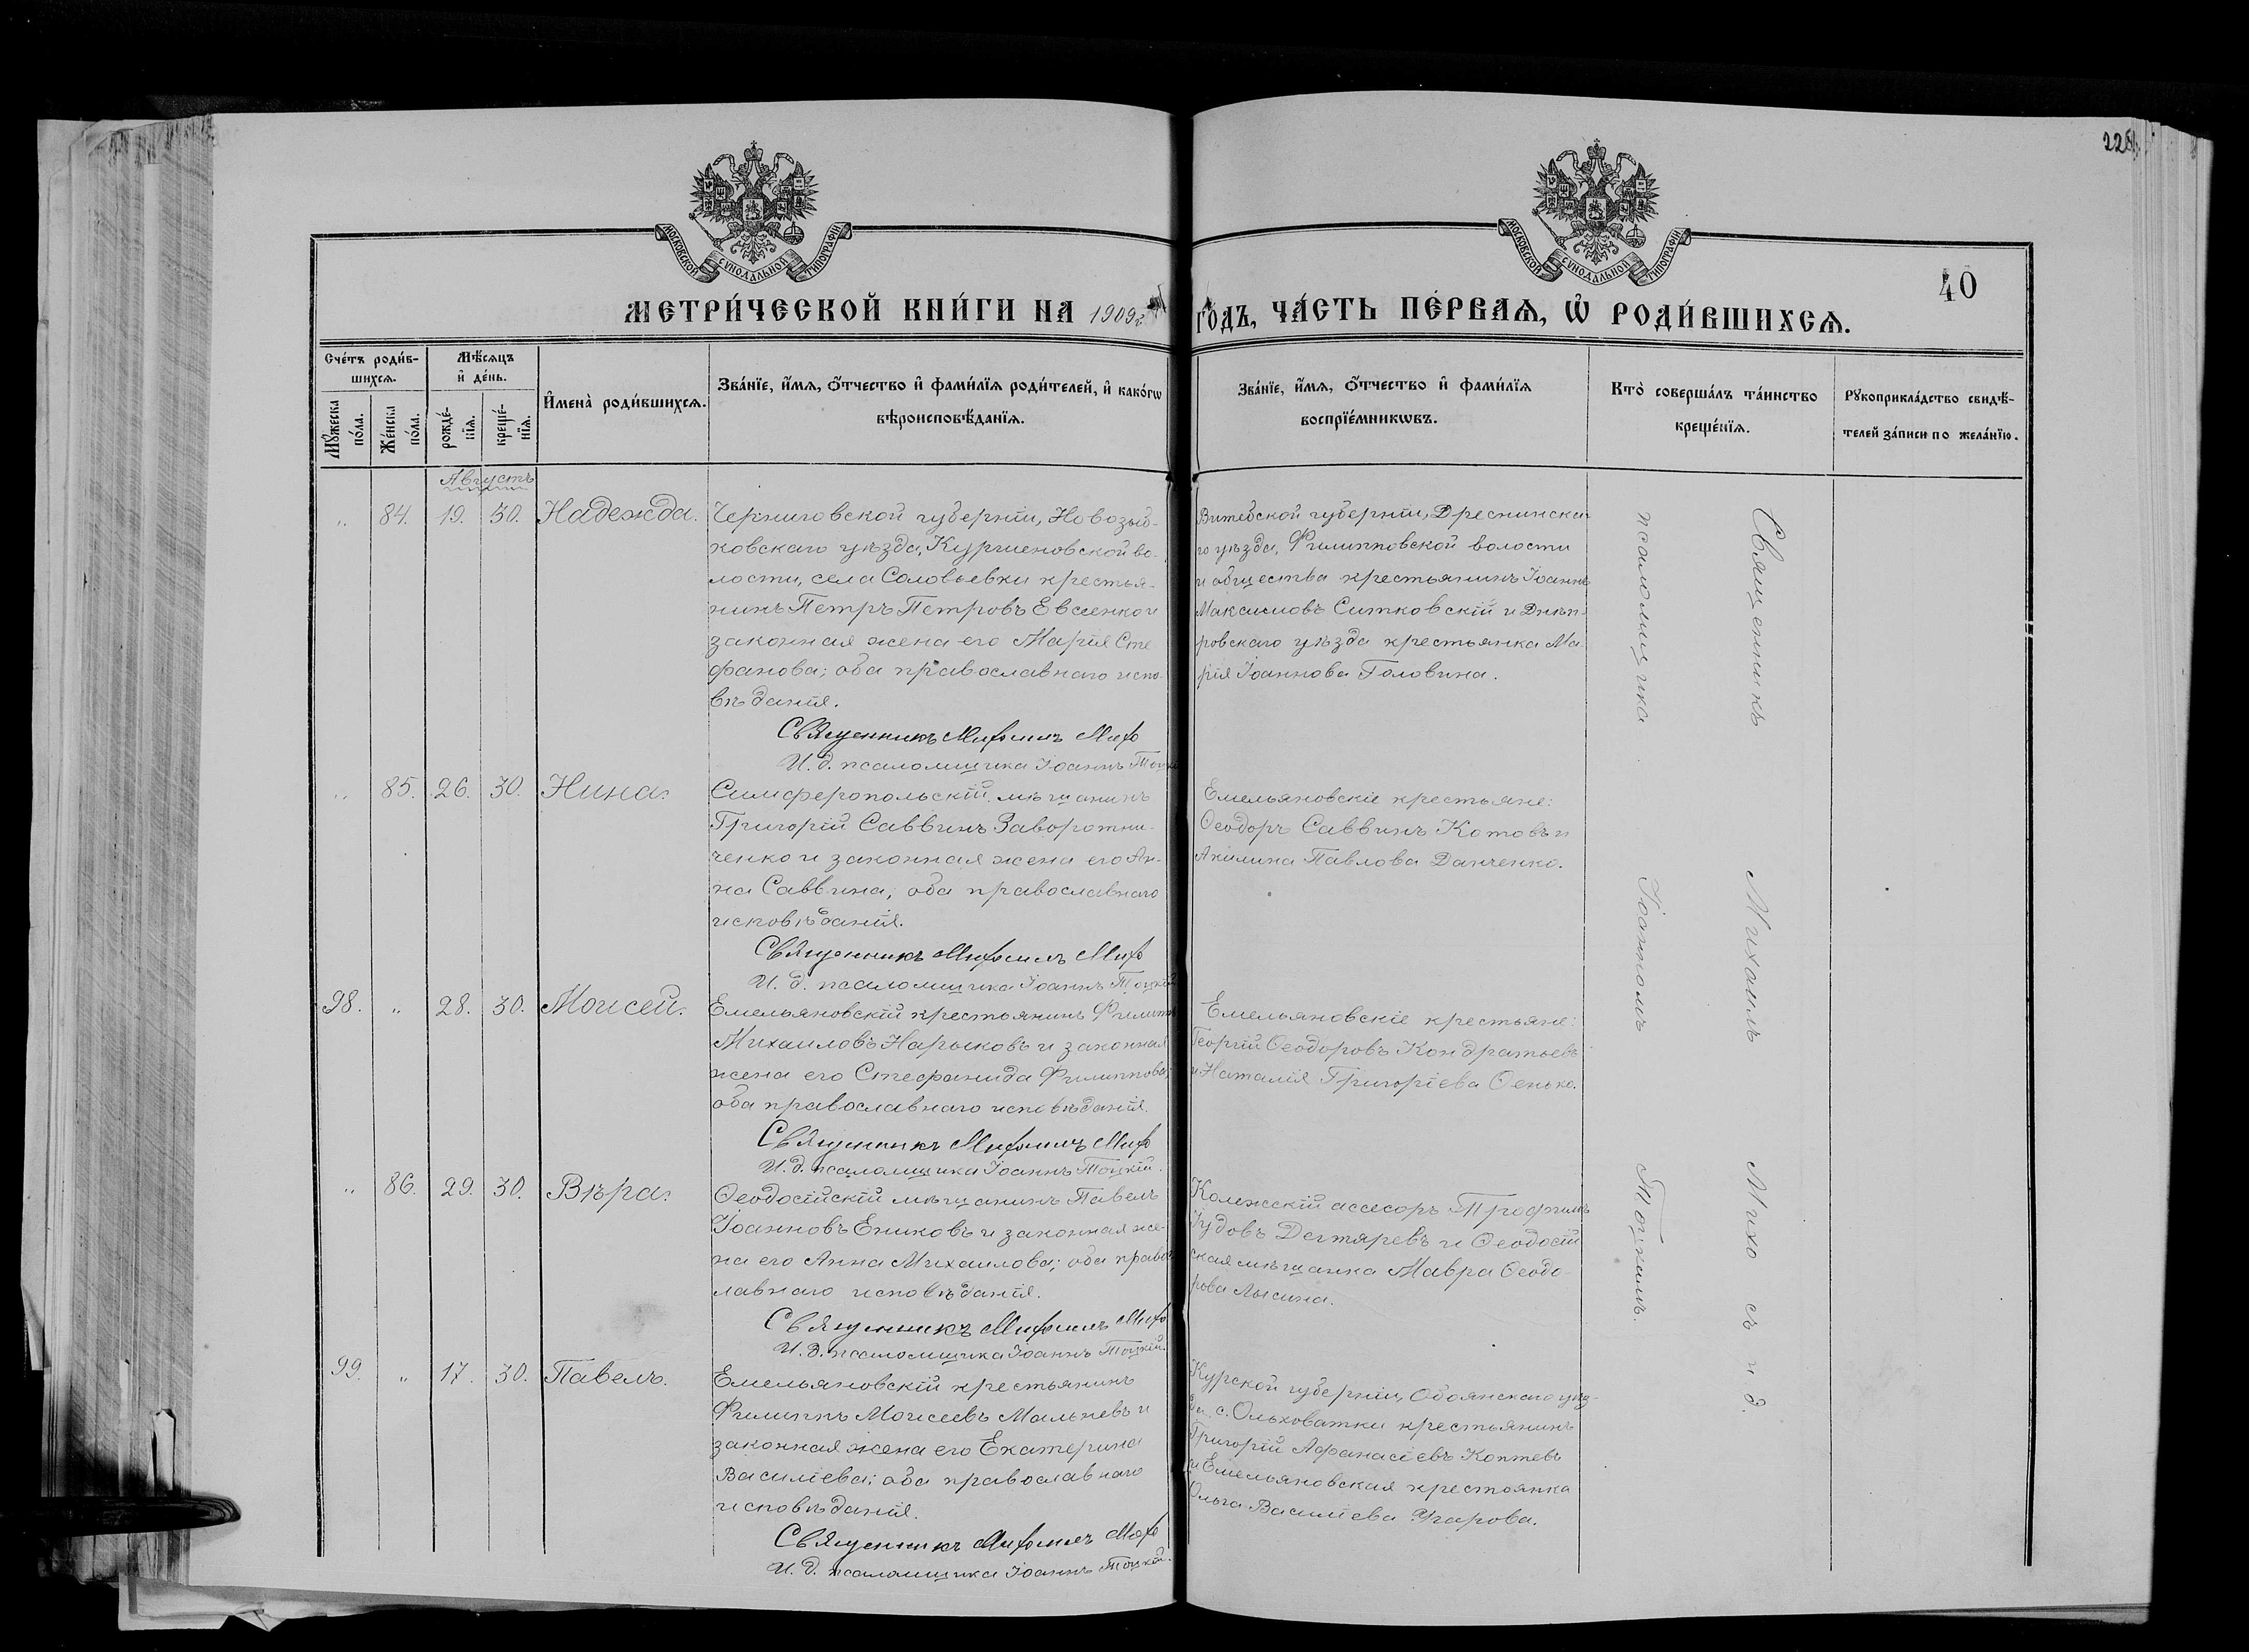 228
МОСКОВСКОЙ СУНОДАЛЬНОЙ ТИПОГРАФІИ
МОСКОВСКОЙ СУНОДАЛЬНОЙ ТИПОГРАФІИ
40
МЕТРИ́ЧЕСКОЙ КНИ́ГИ НА 1909 г.
ГО́ДЪ, ЧА́СТЬ ПЕ́РВАѦ, Ѡ҆ РОДИ́ВШИХСѦ.
Сче́тъ роди́в-
шихсѧ.
Мꙋ́жеска по́ла.
Же́нска по́ла.
Мѣ́сѧцъ
и҆ де́нь.
рожде́-
нїѧ.
креще́-
нїѧ.
И҆мена̀ роди́вшихсѧ.
Зва́нїе, и҆́мѧ, ѻ҆́тчество и҆ фами́лїѧ роди́телей, и҆ како́гѡ
вѣроисповѣ́данїѧ.
Зва́нїе, и҆́мѧ, ѻ҆́тчество и҆ фами́лїѧ
воспрїе́мникѡвъ.
Кто̀ соверша́лъ та́инство
креще́нїѧ.
Рꙋкоприкла́дство свидѣ́-
телей за́писи по жела́нїю.
Августъ
„ 84. 19. 30. Надежда.
Черниговской губерніи, Новозыб-
ковскаго уѣзда, Куршеновской во-
лости, села Соловьевки крестья-
нинъ Петръ Петровъ Евсеенко и
законная жена его Марія Сте
фанова; оба православнаго испо-
вѣданія.
Священникъ Михаилъ Михо
И. д. псаломщика Іоаннъ Тоцкі
Витебской губерніи, Дреснинска
го уѣзда, Филипповской волости
и общества крестьянинъ Іоаннъ
Максимовъ Ситковскій и Днѣп-
ровскаго уѣзда крестьянка Ма
рія Іоаннова Головина.
„ 85. 26. 30. Нина.
Симферопольскій мѣщанинъ
Григорій Саввинъ Заворотни-
ченко и законная жена его Ан-
на Саввина; оба православнаго
исповѣданія.
Священникъ Михаилъ Михо
И. д. псаломщика Іоаннъ Тоцкій
Емельяновскіе крестьяне:
Ѳеодоръ Саввинъ Котовъ и
Акилина Павлова Данченко.
98. „ 28. 30. Моисей.
Емельяновскій крестьянинъ Филипп
Михаиловъ Нарыковъ и законная
жена его Стефанида Филиппова;
оба православнаго исповѣданія.
Священникъ Михаилъ Михо
И. д. псаломщика Іоаннъ Тоцкій.
Емельяновскіе крестьяне:
Георгій Ѳеодоровъ Кондратьевъ
и Наталія Григоріева Ѳенько.
„ 86. 29. 30. Вѣра.
Ѳеодосійскій мѣщанинъ Павелъ
Іоанновъ Ениковъ и законная же-
на его Анна Михаилова; оба правос
лавнаго исповѣданія.
Священникъ Михаилъ Михо
И. д. псаломщика Іоаннъ Тоцкій.
Колежскій ассесоръ Трофимъ
Іудовъ Дегтяревъ и Ѳеодосій
ская мѣщанка Мавра Ѳеодо-
рова Лысина.
99. „ 17. 30. Павелъ.
Емельяновскій крестьянинъ
Филиппъ Моисеевъ Мальневъ и
законная жена его Екатерина
Василіева; оба православнаго
исповѣданія.
Священникъ Михаилъ Михо
И. д. псаломщика Іоаннъ Тоцкій.
Курской губерніи, Обоянскаго уѣз-
да, с. Ольховатки крестьянинъ
Григорій Афанасіевъ Коптевъ
и Емельяновская крестьянка
Ольга Василіева Угарова.
Священникъ Михаилъ Михо съ и д.
псаломщика Іоанномъ Тоцкимъ.